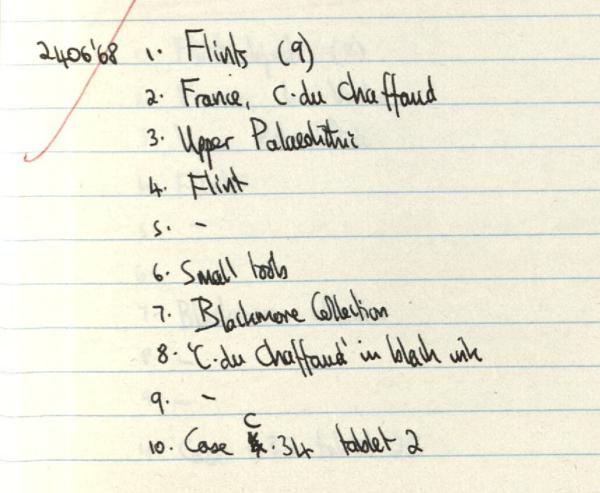 2406'68 1. Flints (9)
2. France, C. du Chaffaud
3. Upper Palaeolithic
4. Flint
5. -
6. Small tools
7. Blackmore Collection
8. 'C. du Chaffaud' in black ink
9. -
10. Case C.34 tablet 2